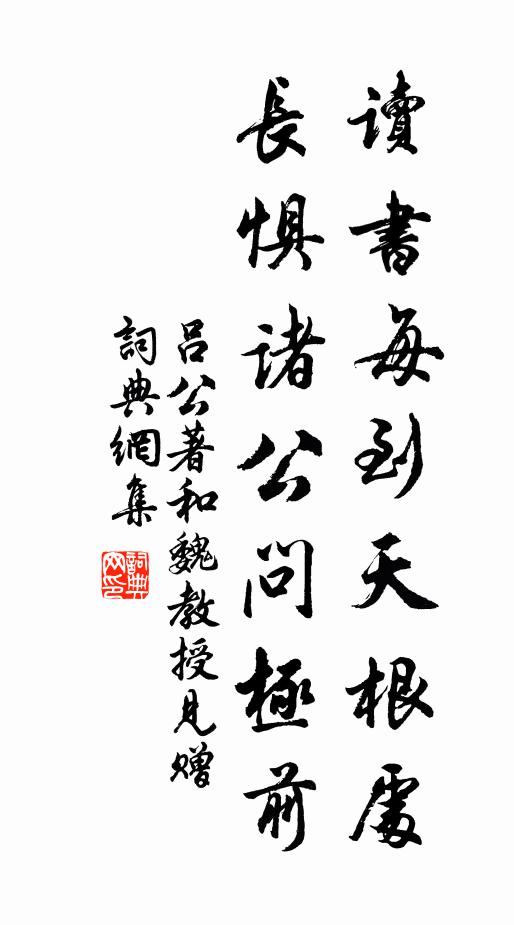 讀書每到天根處
長懼諸公問極前
呂公著和魏教授見贈
詞典網集
詞典
网印